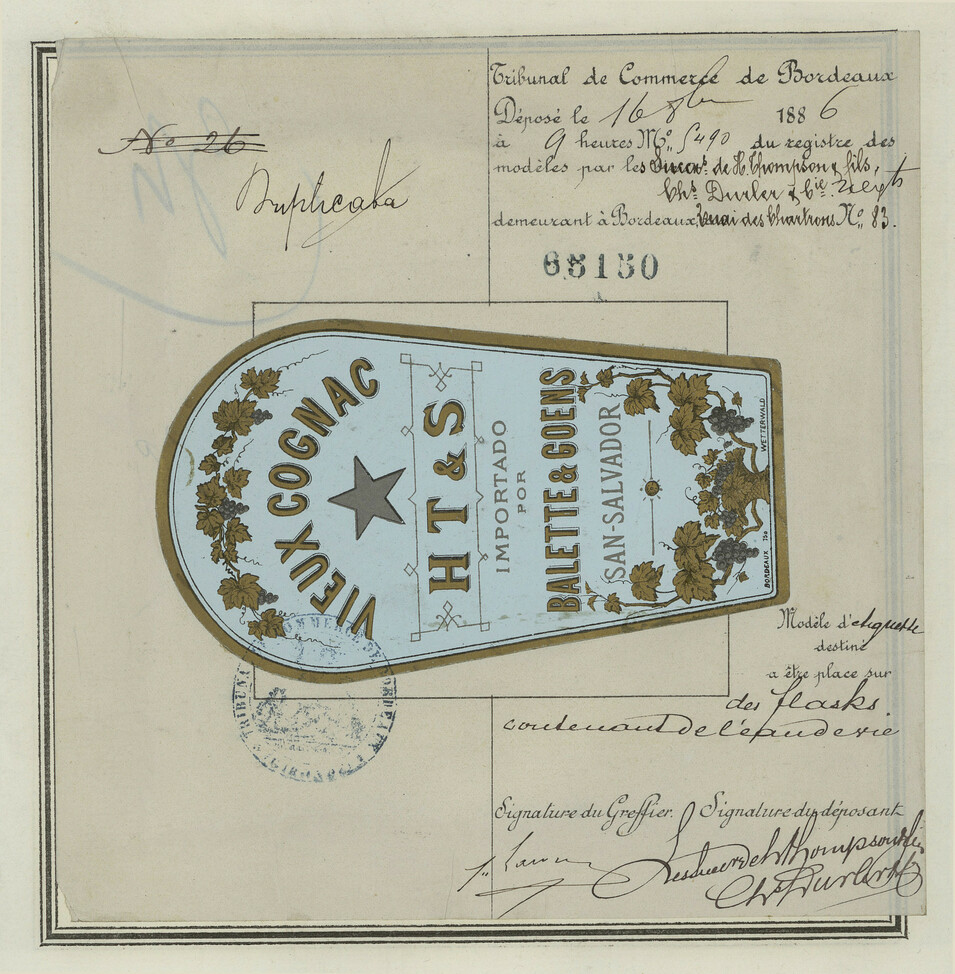 Tribunal de Commerce de Bordeaux
Déposé le 16 8bre 1886
à 9 heures M. No. 5490 du registre des
modèles par les Succrs. de H. Thompson & fils,
Chs. Durler & Cie. Negts
demeurant à Bordeaux, Quai des Chartrons No. 83.
No 26
Duplicata
65150
VIEUX COGNAC
H T & S
IMPORTADO
POR
BALETTE & GOENS
SAN-SALVADOR
BORDEAUX WETTERWALD
TRIBUNAL DE COMMERCE DE BORDEAUX
(GIRONDE)
Modèle d'étiquette
destiné
a être place sur
des flasks
contenant de l'eau de vie
Signature du Greffier. Signature du déposant
Les succrs de H Thompson & fils
Chs Durler & Cie